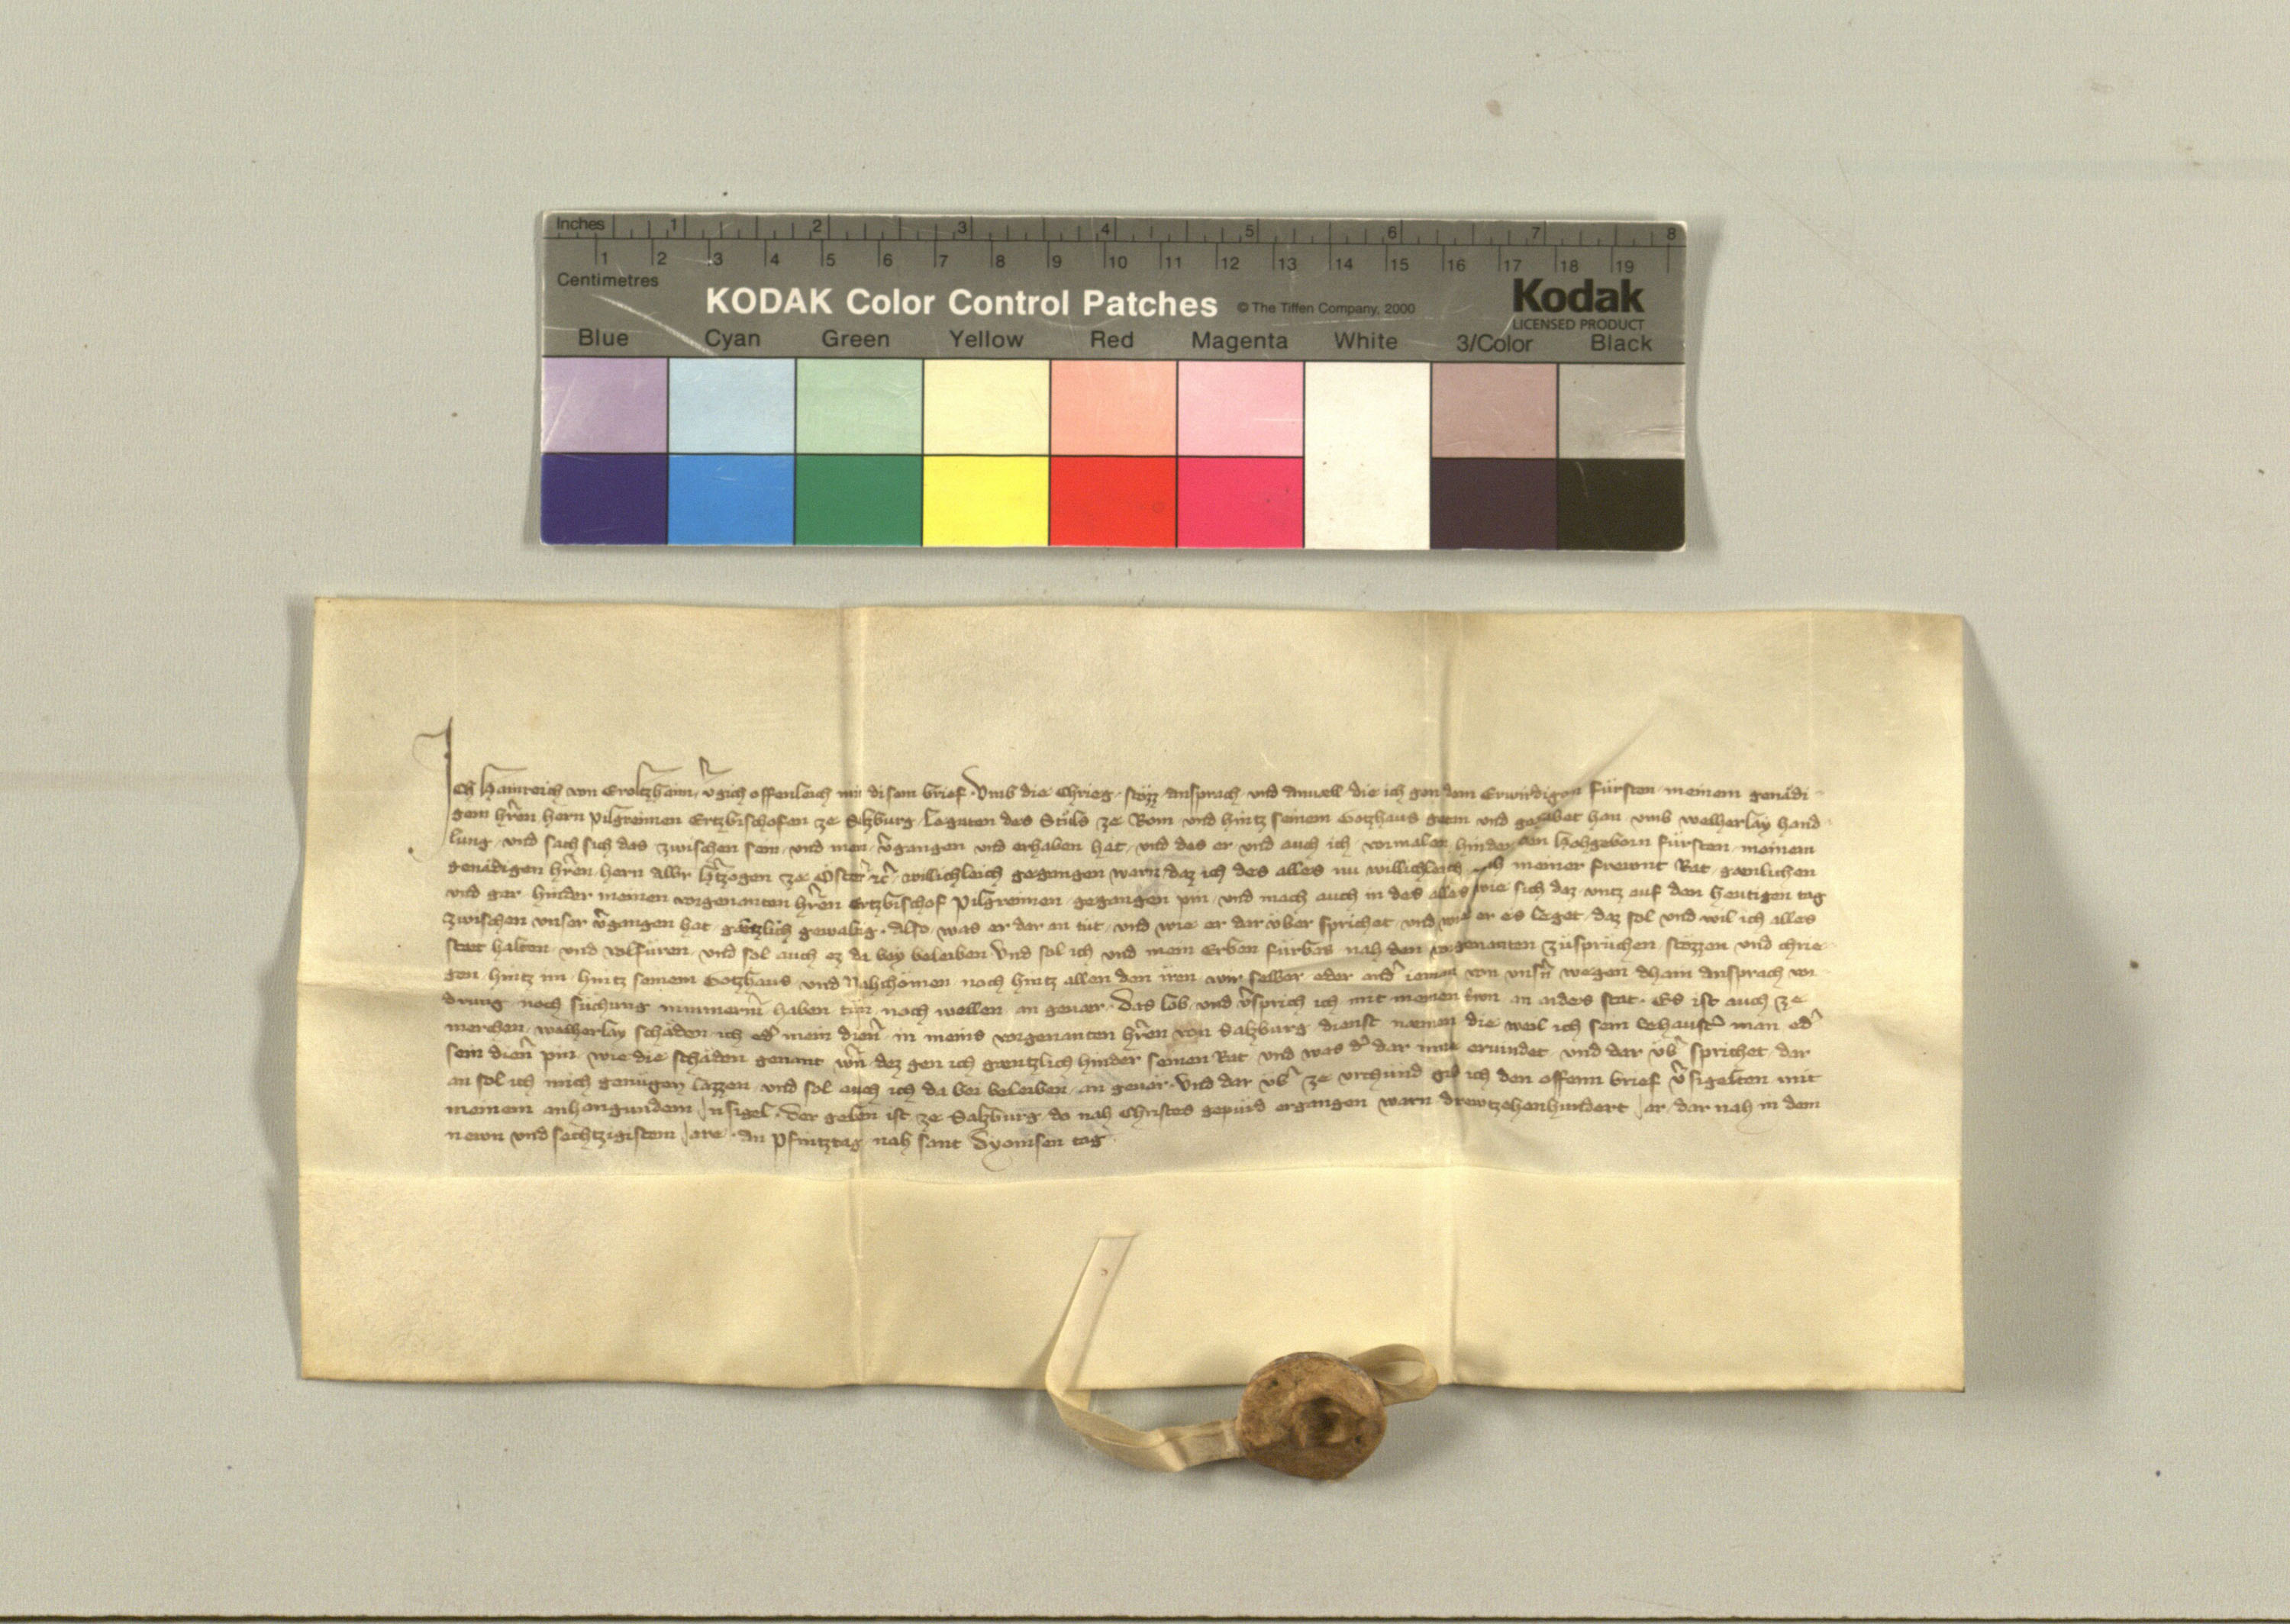 Inches 1 2 3 4 5 6 7 8
1 2 3 4 5 6 7 8 9 10 11 12 13 14 15 16 17 18 19
Centimetres
KODAK Color Control Patches © The Tiffen Company, 2000 Kodak
LICENSED PRODUCT
Blue Cyan Green Yellow Red Magenta White 3/Color Black
Ich Hainreich von Eroltzhaim v̂gich offenleich mit disem brief. Vmb die Chrieg stözz ansprach vnd anuell die ich gen dem Erwirdigen fürsten meinem genädi
gem hr̄en hern Pilgreimen Ertzbischofen ze Saltzburg Legaten des Stůls ze Rom vnd hintz seinem Gotzhaus vnd gehabet han vmb welherlay hand
lung vnd sach sich das zwischen sein vnd mein v̂gangen vnd erhaben hat vnd des er vnd auch ich vormalen hinder den Hohgeborn fürsten meinem
genädigen hr̄en hern Albr̄ Hr̄tzogen ze Öster̄ ꝛc̄ willichleich gegangen warn daz ich des alles nu willichleich nah meiner frewnt Rat gaenlichen
vnd gar hinder meinen vorgenanten hr̄en Ertzbischof Pilgreimen gegangen pin vnd mach auch in des alles wie sich daz vntz auf den heutigen tag
zwischen vnser v̂gangen hat gäntzlich gewaltig. Also was er dar an tůt vnd wie er dar über sprichet vnd wie er es leget daz sol vnd wil ich alles
staet halten vnd volfüren vnd sol auch ez da bey beleiben Vnd sol ich vnd mein Erben fürbas nah den vorgenanten züsprüchen stözzen vnd chrie
gen hintz im hintz seinem Gotzhaus vnd Nahchömen noch hintz allen den iren wir selber oder and̂ ieman von vnsn̄ wegen dhain ansprach vor
drung noch süchung nimmerm̄ haben tůn noch wellen an geuer. Das lob vnd v̂sprich ich mit meinen trwn an aides stat. Es ist auch ze
merchen welherlay schäden ich od̂ mein dien̄ in meins vorgenanten hr̄en von Salzburg dienst naemen die weil ich sein behauster man od̂
sein dien̄ pin wie die schäden genant wn̄ dez gen ich gaentzlich hinder seinen Rat vnd was d̂ dar inne eruindet vnd dar üb̂ sprichet dar
an sol ich mich genügen lazzen vnd sol auch ich da bei beleiben an geuer. Vnd dar üb̂ ze vrchund gib ich den offenn brief v̂sigelten mit
meinem anhangundem Insigel. Der geben ist ze Salzburg do nah Christes gepürd ergangen warn drewtzehenhundert Iar dar nah in dem
newn vnd sechtzigistem Iare. An Pfintztag nah sant Dyonisen tag